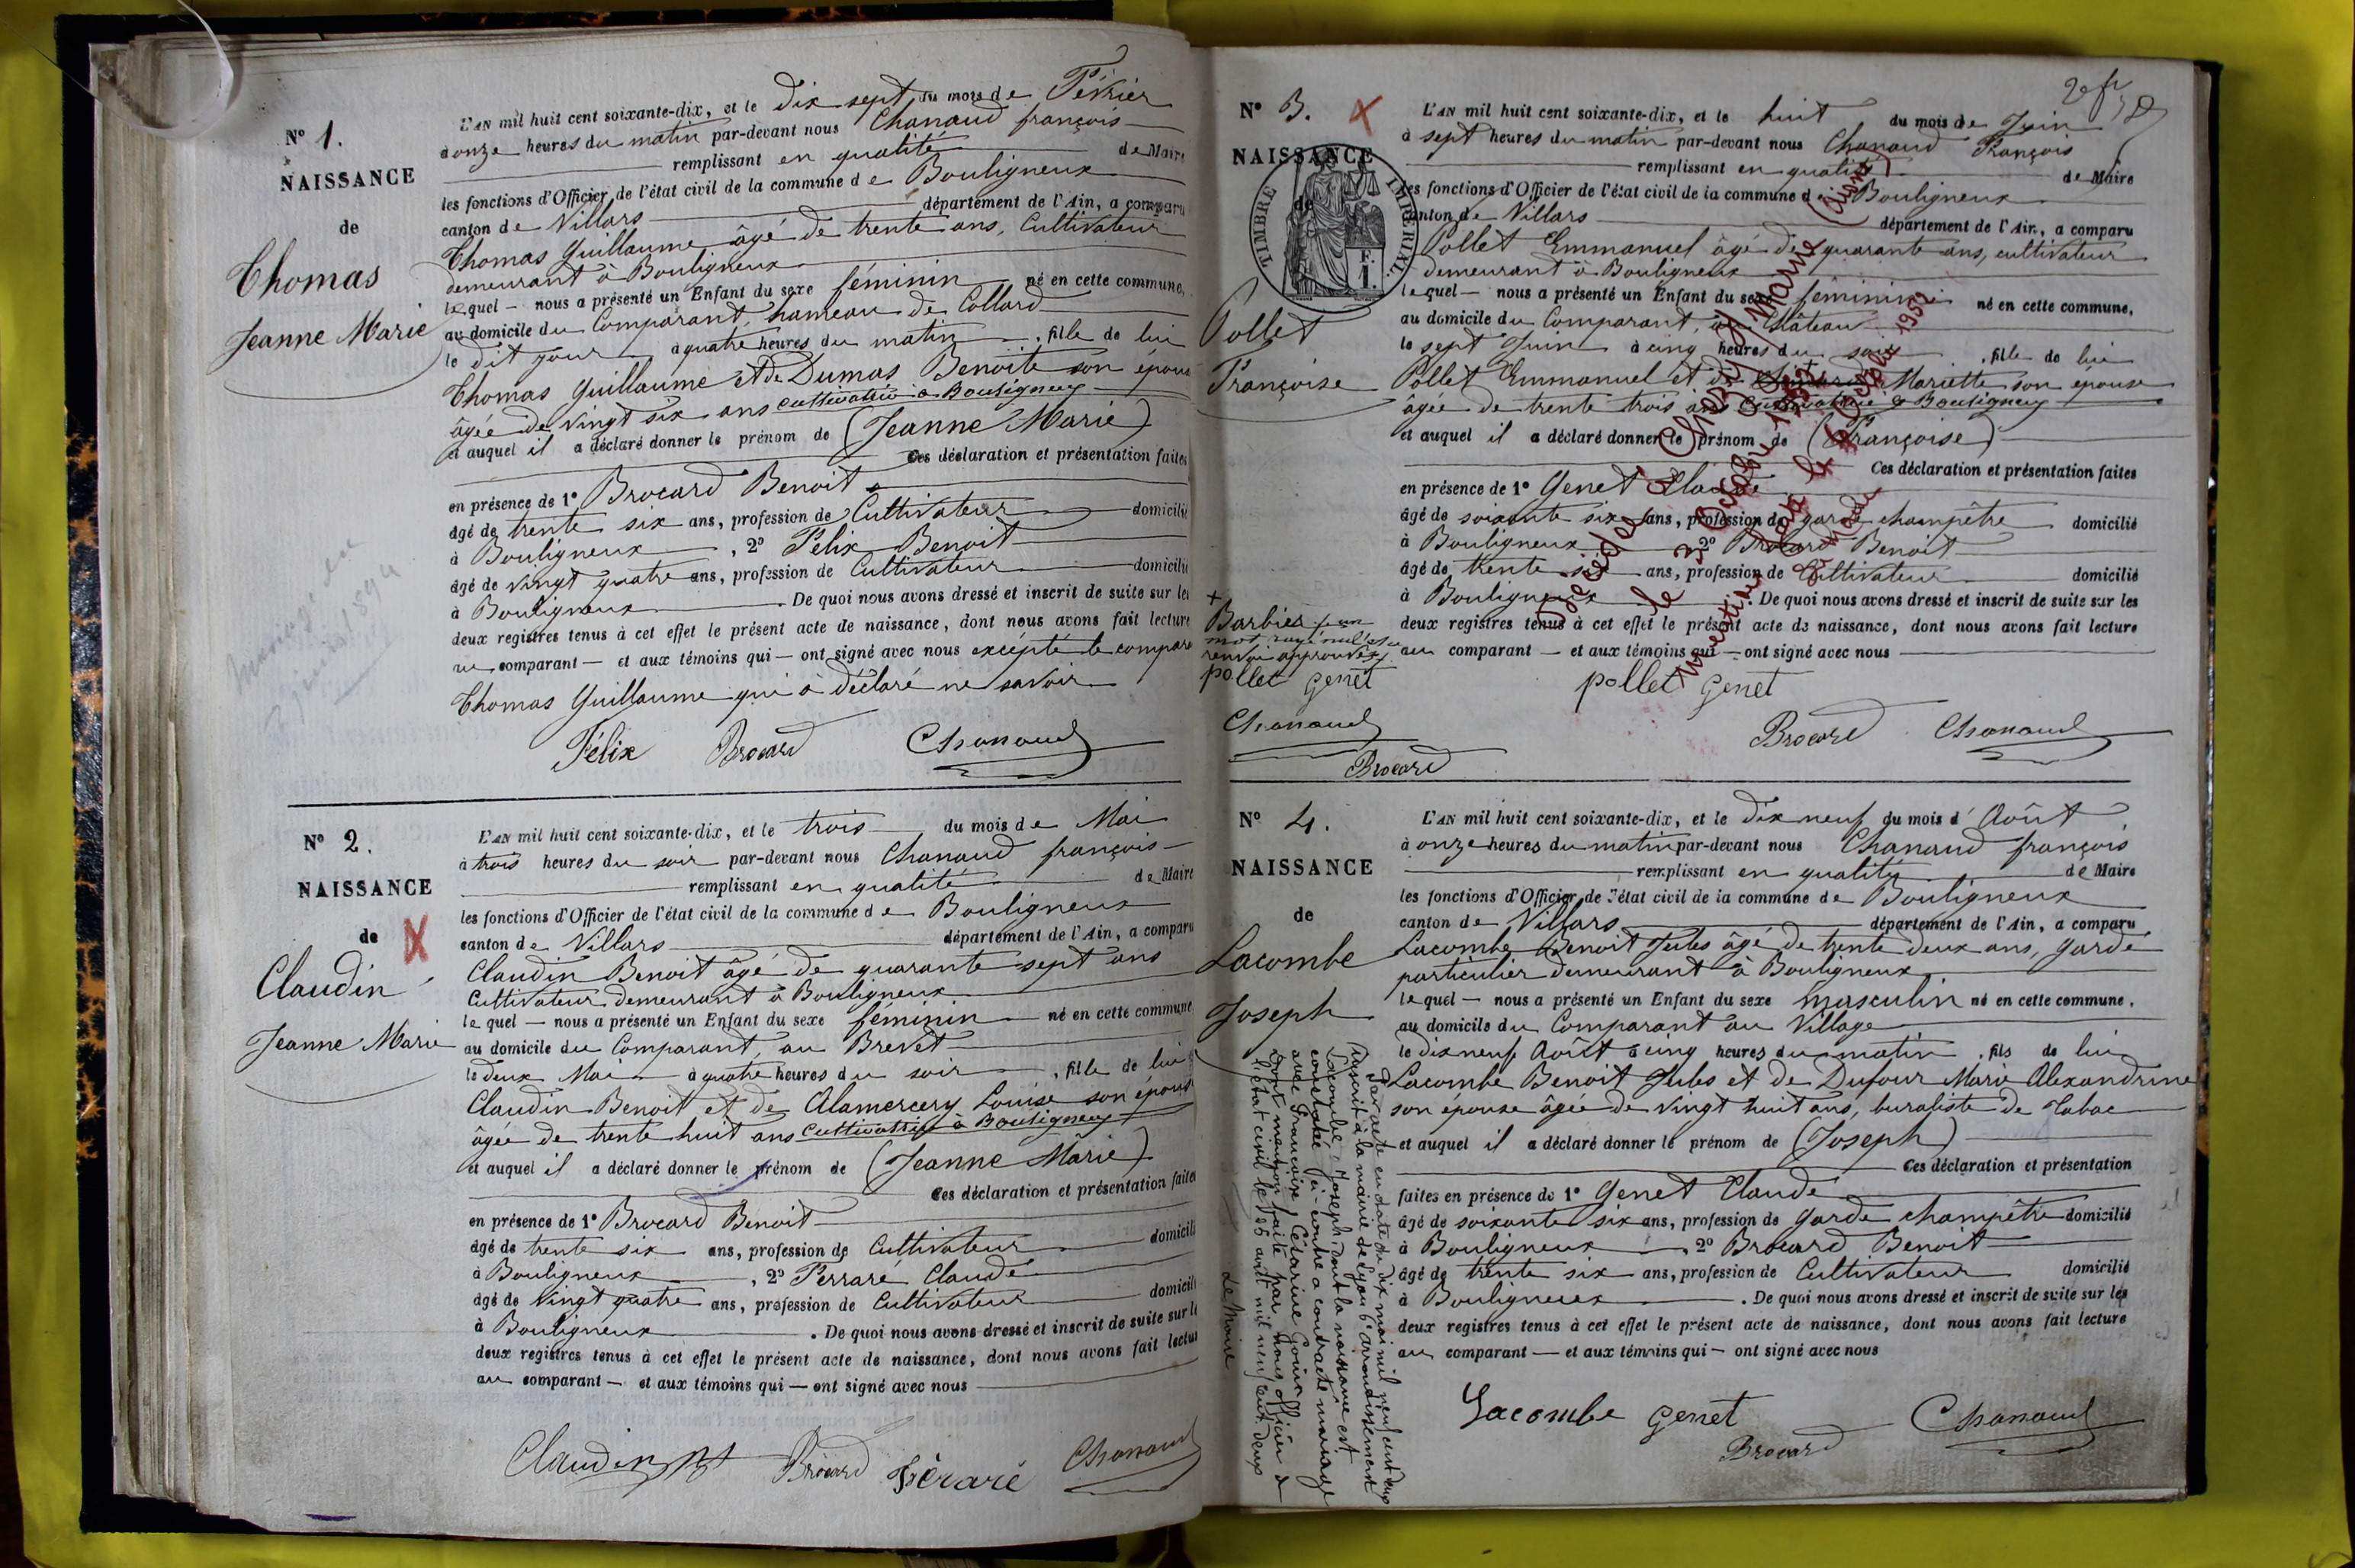 N° 1.
NAISSANCE
de
Thomas
Jeanne Marie
L'AN mil huit cent soixante-dix, et le dix sept du mois de Février
à onze heures du matin par-devant nous Chanaud françois
remplissant en qualité de Maire
les fonctions d'Officier de l'état civil de la commune de Bouligneux
canton de Villars département de l'Ain, a comparu
Thomas Guillaume âgé de trente ans, Cultivateur
demeurant à Bouligneux
lequel nous a présenté un Enfant du sexe féminin né en cette commune,
au domicile du Comparant, hameau de Collard
le dit jour à quatre heures du matin, fille de lui
Thomas Guillaume et de Dumas Benoite son épouse
âgée de vingt six ans cultivatrice à Bouligneux
et auquel il a déclaré donner le prénom de (Jeanne Marie)
Ces déclaration et présentation faites
en présence de 1° Brocard Benoit
âgé de trente six ans, profession de Cultivateur domicilié
à Bouligneux, 2° Félix Benoit
âgé de vingt quatre ans, profession de Cultivateur domicilié
à Bouligneux. De quoi nous avons dressé et inscrit de suite sur les
deux registres tenus à cet effet le présent acte de naissance, dont nous avons fait lecture
au comparant — et aux témoins qui — ont signé avec nous excepté le compara
Thomas Guillaume qui a déclaré ne savoir
Félix Brocard Chanaud
N° 2.
NAISSANCE
de
Claudin
Jeanne Marie
L'AN mil huit cent soixante-dix, et le trois du mois de Mai
à trois heures du soir par-devant nous Chanaud françois
remplissant en qualité de Maire
les fonctions d'Officier de l'état civil de la commune de Bouligneux
canton de Villars département de l'Ain, a comparu
Claudin Benoit âgé de quarante sept ans
Cultivateur demeurant à Bouligneux
lequel — nous a présenté un Enfant du sexe féminin né en cette commune,
au domicile du Comparant, au Brevet
le deux Mai à quatre heures du soir, fille de lui
Claudin Benoit et de Alamercery Louise son épouse
âgée de trente huit ans Cultivatrice à Bouligneux
et auquel il a déclaré donner le prénom de (Jeanne Marie)
Ces déclaration et présentation faites
en présence de 1° Brocard Benoit
âgé de trente six ans, profession de Cultivateur domicilié
à Bouligneux, 2° Perraré Claude
âgé de vingt quatre ans, profession de Cultivateur domicilié
à Bouligneux. De quoi nous avons dressé et inscrit de suite sur les
deux registres tenus à cet effet le présent acte de naissance, dont nous avons fait lecture
au comparant — et aux témoins qui — ont signé avec nous
Claudin Brocard Péraré Chanaud
N° 3.
NAISSANCE
de
TIMBRE IMPERIAL.
F. 1.
Pollet
Françoise
L'AN mil huit cent soixante-dix, et le huit du mois de Juin
à sept heures du matin par-devant nous Chanaud François
remplissant en qualité de Maire
les fonctions d'Officier de l'état civil de la commune de Bouligneux
canton de Villars département de l'Ain, a comparu
Pollet Emmanuel âgé de quarante ans, cultivateur
demeurant à Bouligneux
lequel — nous a présenté un Enfant du sexe féminin né en cette commune,
au domicile du Comparant, au Château
le sept Juin à cinq heures du soir, fille de lui
Pollet Emmanuel et de + Mariette son épouse
âgée de trente trois ans cultivatrice à Bouligneux
et auquel il a déclaré donner le prénom de (Françoise)
Ces déclaration et présentation faites
en présence de 1° Genet Claude
âgé de soixante six ans, profession de garde champêtre domicilié
à Bouligneux 2° Brocard Benoit
âgé de trente six ans, profession de Cultivateur domicilié
à Bouligneux. De quoi nous avons dressé et inscrit de suite sur les
deux registres tenus à cet effet le présent acte de naissance, dont nous avons fait lecture
au comparant — et aux témoins qui — ont signé avec nous
pollet Genet
Brocard Chanaud
+
Barbier
mot rayé nul
renvoi approuvés
pollet Genet
Chanaud
Brocard
Décédée à Choisy / Marne (Aisne)
le 3 Octobre
Mention faite le Octobre 195
N° 4.
NAISSANCE
de
Lacombe
Joseph
L'AN mil huit cent soixante-dix, et le dix neuf du mois d'Août
à onze heures du matin par-devant nous Chanaud françois
remplissant en qualité de Maire
les fonctions d'Officier de l'état civil de la commune de Bouligneux
canton de Villars département de l'Ain, a comparu
Lacombe Benoit Jules âgé de trente deux ans, garde
particulier demeurant à Bouligneux
lequel — nous a présenté un Enfant du sexe masculin né en cette commune.
au domicile du Comparant au Village
le dix neuf Août à cinq heures du matin, fils de lui
Lacombe Benoit Jules et de Dufour Marie Alexandrine
son épouse âgée de vingt huit ans, buraliste de tabac
et auquel il a déclaré donner le prénom de (Joseph)
Ces déclaration et présentation
faites en présence de 1° Genet Claude
âgé de soixante six ans, profession de garde champêtre domicilié
à Bouligneux, 2° Brocard Benoit
âgé de trente six ans, profession de Cultivateur domicilié
à Bouligneux. De quoi nous avons dressé et inscrit de suite sur les
deux registres tenus à cet effet le présent acte de naissance, dont nous avons fait lecture
au comparant — et aux témoins qui — ont signé avec nous
Lacombe Genet
Brocard Chanaud
Par acte en date du dix mai mil neuf cent deux
inscrit à la mairie de Lyon 6e arrondissement
Lacombe Joseph dont la naissance est
constatée ci contre a contracté mariage
avec Françoise Césarine Gouin
Dont mention faite par nous officier de
l'état civil le 26 août mil neuf cent deux
Le Maire